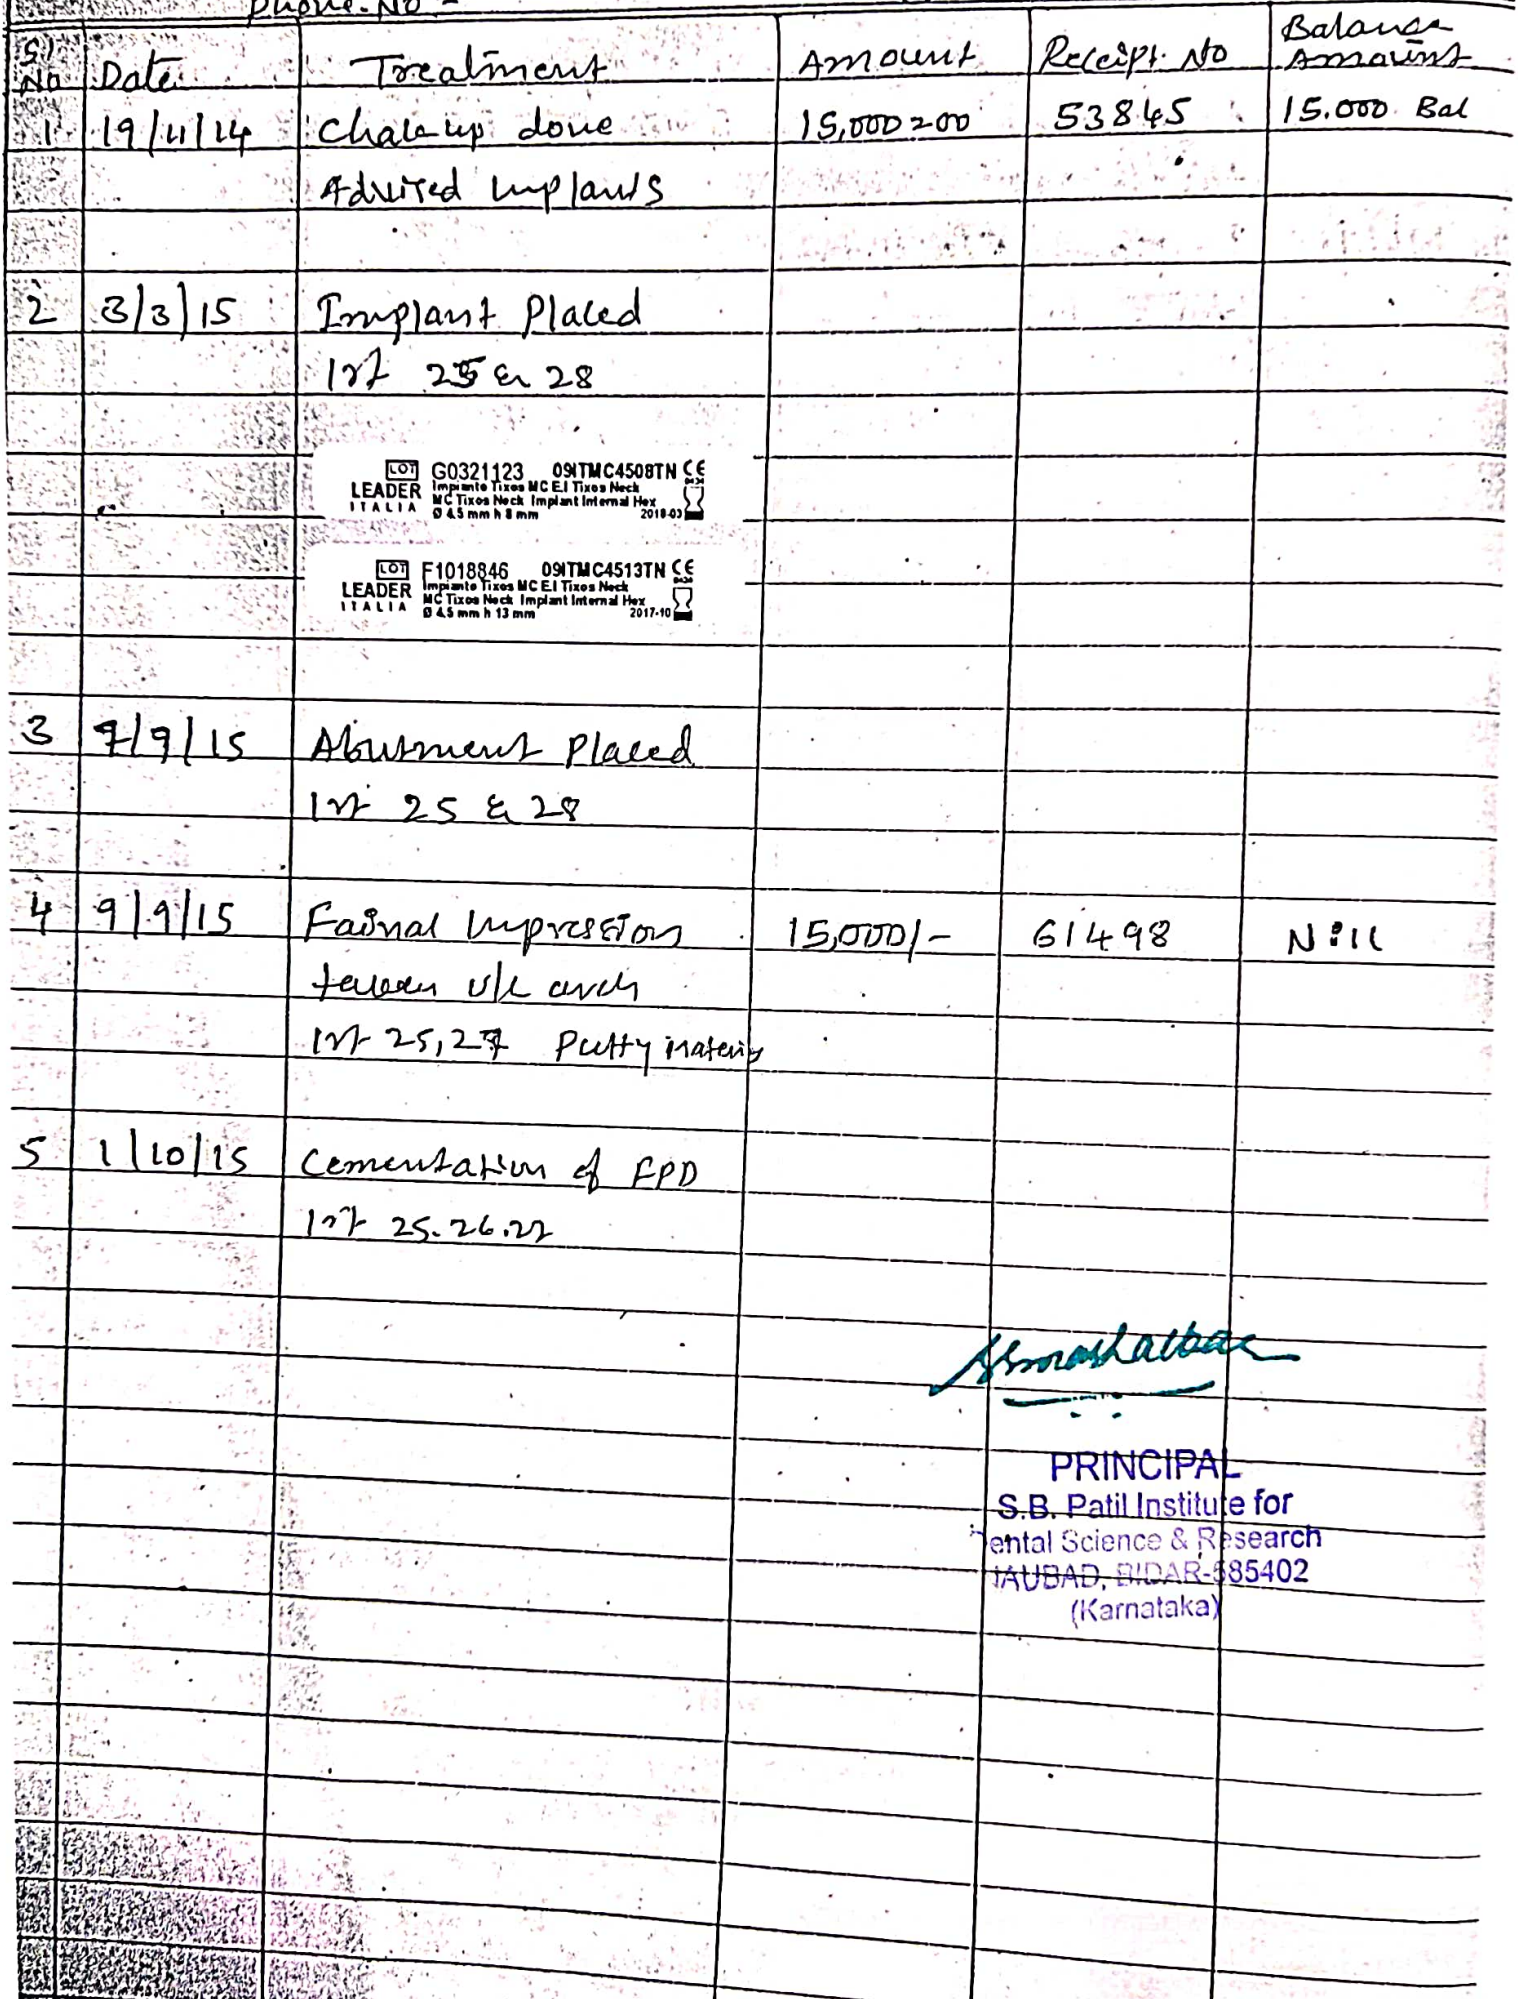 Phone. No -
Sl No Date Treatment Amount Receipt No Balance Amount
1 19/11/14 Chakup done 15,000=00 53845 15.000 Bal
Advised Implants
2 3/3/15 Implant Placed
irt 25 & 28
LOT G0321123 09ITMC4508TN CE
LEADER ITALIA Impianto Tixos MC E.I Tixos Neck
MC Tixos Neck Implant Internal Hex
Ø 4.5 mm h 8 mm 2018-03
LOT F1018846 09ITMC4513TN CE
LEADER ITALIA Impianto Tixos MC E.I Tixos Neck
MC Tixos Neck Implant Internal Hex
Ø 4.5 mm h 13 mm 2017-10
3 7/9/15 Abutment Placed
irt 25 & 28
4 9/9/15 Fainal Impression 15,000/- 61498 Nill
U/L arch
irt 25,27 Putty
5 1/10/15 Cementation of FPD
irt 25.26.27
PRINCIPAL
S.B. Patil Institute for
ental Science & Research
NAUBAD, BIDAR-585402
(Karnataka)